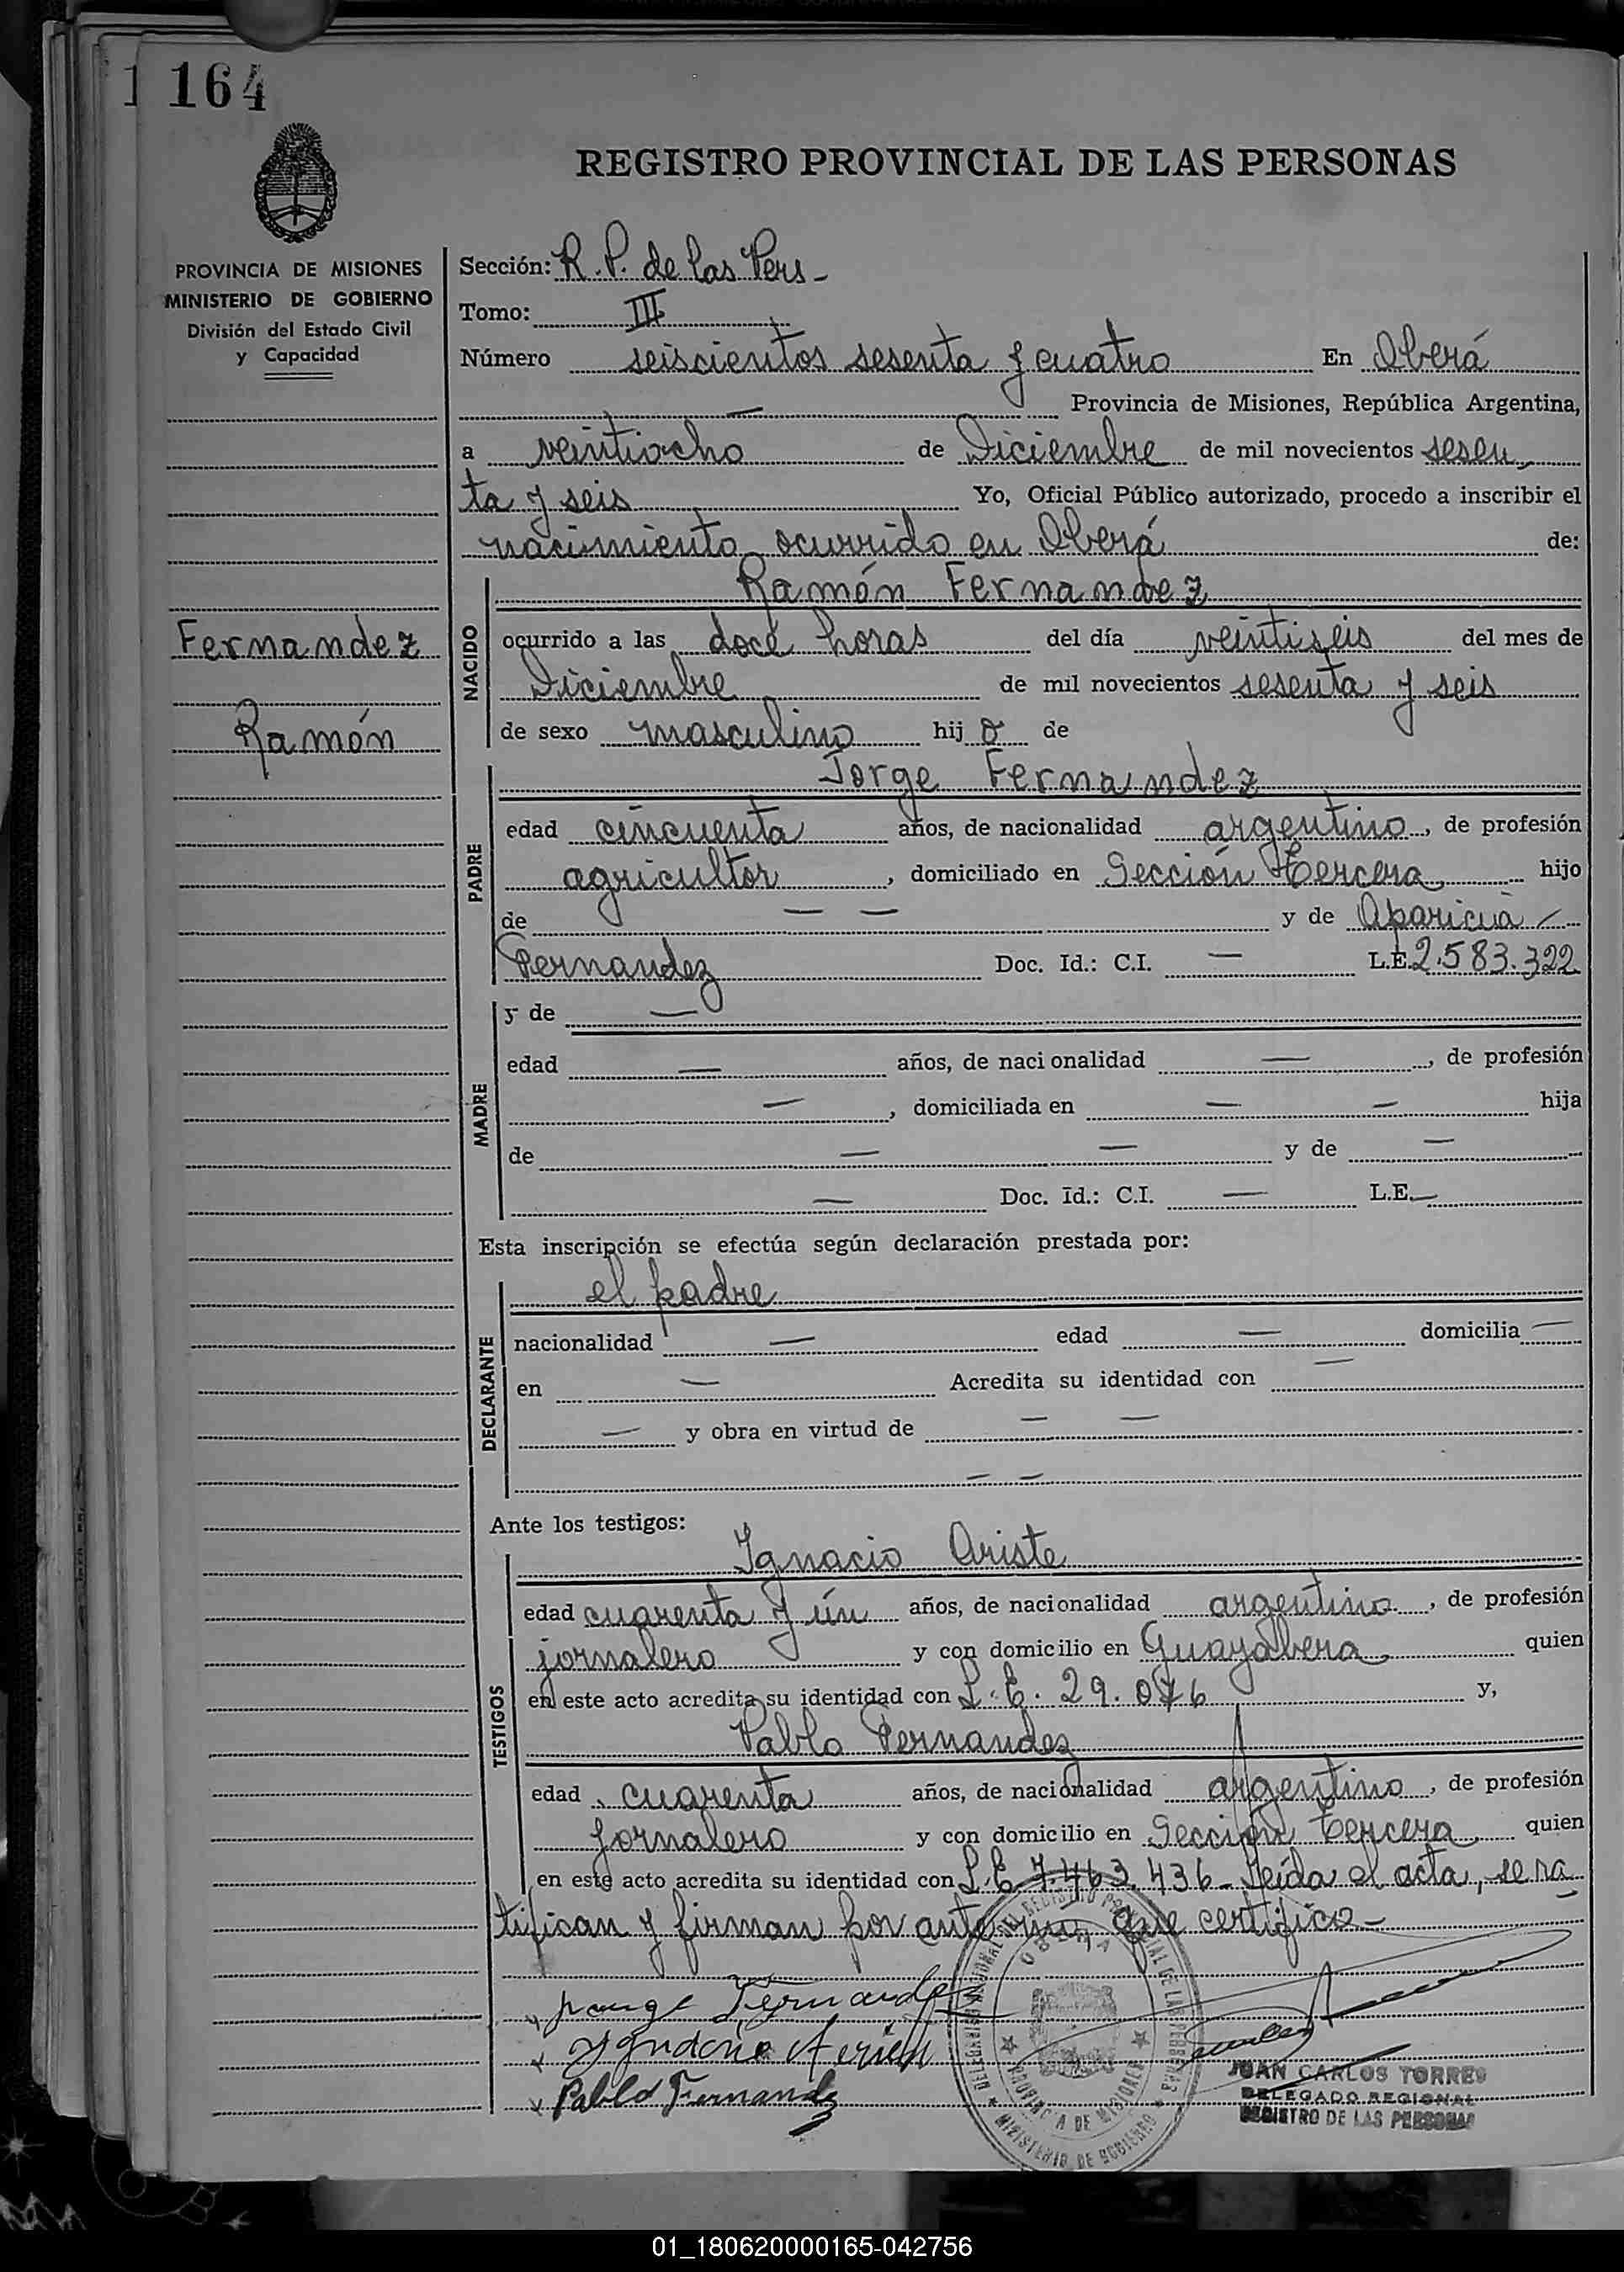 1 164
REGISTRO PROVINCIAL DE LAS PERSONAS
PROVINCIA DE MISIONES
MINISTERIO DE GOBIERNO
División del Estado Civil
y Capacidad
Fernandez
Ramón
Sección: R. P. de las Pers -
Tomo: III
Número seiscientos sesenta y cuatro En Oberá
— Provincia de Misiones, República Argentina,
a veintiocho de Diciembre de mil novecientos sesen
ta y seis Yo, Oficial Público autorizado, procedo a inscribir el
nacimiento ocurrido en Oberá de:
NACIDO
Ramón Fernandez
ocurrido a las doce horas del día veintiseis del mes de
Diciembre de mil novecientos sesenta y seis
de sexo masculino hij o de
PADRE
Jorge Fernandez
edad cincuenta años, de nacionalidad argentino, de profesión
agricultor, domiciliado en Sección tercera hijo
de — — y de Aparicia
Fernandez Doc. Id.: C.I. — L.E. 2.583.322
MADRE
y de —
edad — años, de nacionalidad —, de profesión
—, domiciliada en — — hija
de — — y de —
— Doc. Id.: C.I. — L.E. —
Esta inscripción se efectúa según declaración prestada por:
DECLARANTE
el padre
nacionalidad — edad — domicilia —
en — Acredita su identidad con —
— y obra en virtud de — —
— —
Ante los testigos:
TESTIGOS
Ignacio Ariste
edad cuarenta y ún años, de nacionalidad argentino, de profesión
jornalero y con domicilio en Guayabera quien
en este acto acredita su identidad con L.E. 29.076 y,
Pablo Fernandez
edad cuarenta años, de nacionalidad argentino, de profesión
jornalero y con domicilio en Sección tercera quien
en este acto acredita su identidad con L.E. 7.463.436 - Leída el acta, se ra
tifican y firman por ante mi, que certifico -
x Pablo Fernandez
OBERA
PROVINCIA DE MISIONES
MINISTERIO DE GOBIERNO
JUAN CARLOS TORRES
DELEGADO REGIONAL
REGISTRO DE LAS PERSONAS
01_180620000165-042756